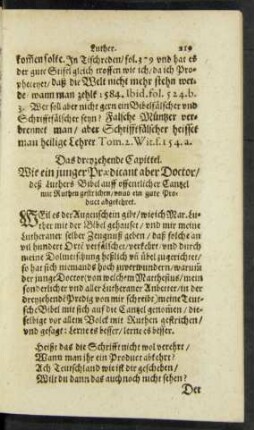 Luther. 219
kommen solte. In Tischreden/ fol. 379 vnd hat es
der gute Stiffel gleich troffen wie ich/ da ich Pro-
pheceyet/ daß die Welt nicht mehr stehn wer-
de wann man zehlt 1584. Ibid. fol. 524. b.
3. Wer soll aber nicht gern ein Bibelfälscher vnd
Schrifftfälscher seyn? Falsche Müntzer ver-
brennet man/ aber Schrifftfälscher heisset
man heilige Lehrer Tom. 2. Wit. f. 154. a.
Das dreyzehende Capittel.
Wie ein junger Prædicant aber Doctor/
deß Luthers Bibel auff offentlicher Cantzel
mit Ruthen gestrichen/ vnd ein gute Pro-
duct abgekehret.
WEil es der Augenschein gibt/ wie ich Mar. Lu-
ther mit der Bibel gehauset/ vnd mir meine
Lutheraner selber Zeugnuß geben/ daß solche an
vil hundert Orten verfälschet/ verkehret/ vnd durch
meine Dolmetschung heßlich vñ übel zugerichtet/
so hat sich niemands hoch zuverwundern/ warumb
der junge Doctor/ von welchem Matthesius/ mein
sonderlicher vnd aller Lutheraner Anbeter/ in der
dreyzehenden Predig von mir schreibt/ meine Teut-
sche Bibel mit sich auff die Cantzel genomen/ die-
selbige vor allem Volck mit Ruthen gestrichen/
vnd gesagt: Lerne es besser/ lerne es besser.
Heißt das die Schrifft nicht wol verehrt/
Wann man ihr ein Product abkehrt?
Ach Teutschland wie ist dir geschehen/
Wilt du dann das auch noch nicht sehen?
Der